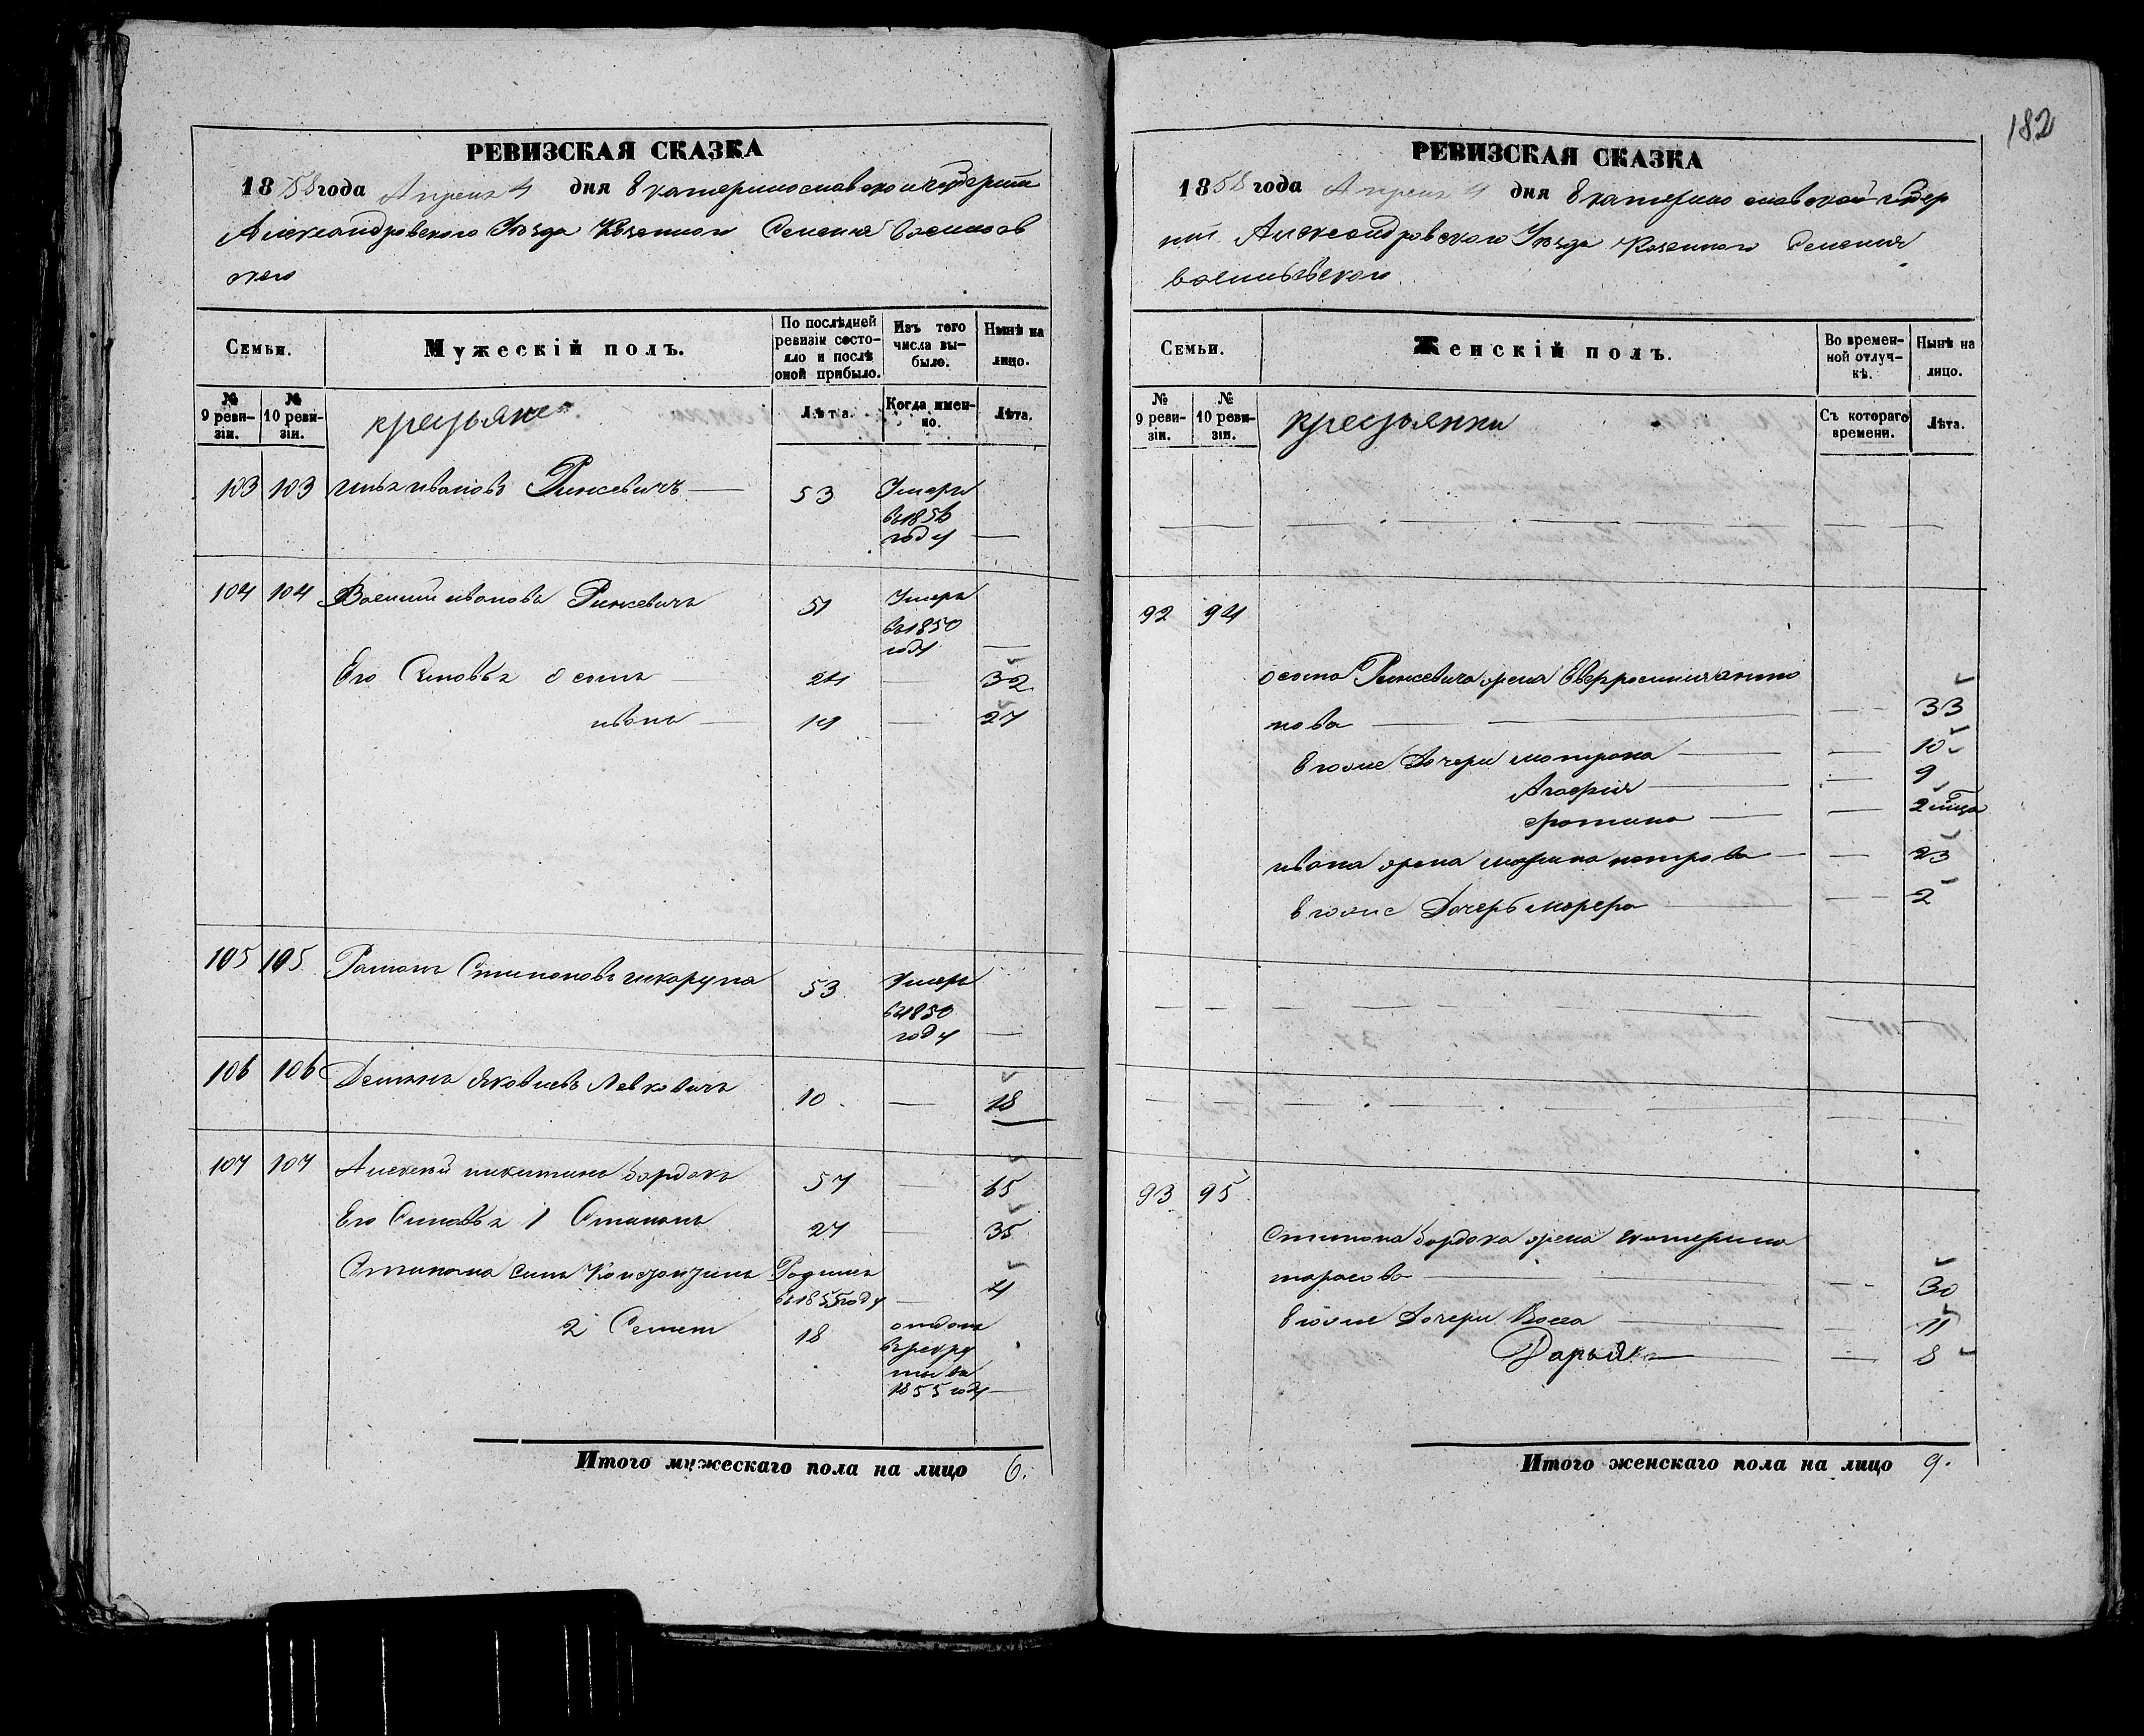 РЕВИЗСКАЯ СКАЗКА
1858 года Апреля 4 дня Екатеринославской губерніи
Александровского Уезда Казенного Селенія Васильев
ского
Семьи.
Мужескій полъ.
По послѣдней ревизіи состояло и послѣ оной прибыло.
Изъ того числа выбыло.
Нынѣ на лицо.
№ 9 ревизіи.
№ 10 ревизіи.
крестьяне
Лѣта.
Когда именно.
Лѣта.
103 103 ивановъ Ринкевичъ — 53 Умеръ
въ 1856
году —
104 104 Василий ивановъ Ринкевичъ 51 Умеръ
въ 1850
году —
Его Сыновья осипъ — 24 — 32
иванъ — 19 — 27
105 105 Романъ Степановъ шкарупа 53 Умеръ
въ 1850
году —
106 106 Демьянъ Яковлевъ Левковичъ 10 — 18
107 107 Алексей никитинъ бардакъ 57 — 65
Его Сыновья 1 Степанъ 27 — 35
Степана сынъ Констянтинъ Родился
въ 1855 году — 4
2 Семен 18 отданъ
въ рекру
ты въ
1855 году —
Итого мужескаго пола на лицо 6.
182
РЕВИЗСКАЯ СКАЗКА
1858 года Апреля 4 дня Екатерино славской губер
ніи Александровского Уезда Казенного Селенія
васильевского
Семьи.
Женскій полъ.
Во временной отлучкѣ.
Нынѣ на лицо.
№ 9 ревизіи.
№ 10 ревизіи.
крестьянки
Съ котораго времени.
Лѣта.
92 94
осипа Ринкевича жена Евфросиния антно
нова — — 33
Е дочери мотрона — — 10
Агафия — — 9
фотина — — 2 мца
ивана жена марина петрова — — 23
Е дочерь марфа — — 2
93 95
степана бардака жена катерина
тарасова — — 30
Е дочери Васса — — 11
Дарья — — 8
Итого женскаго пола на лицо 9.